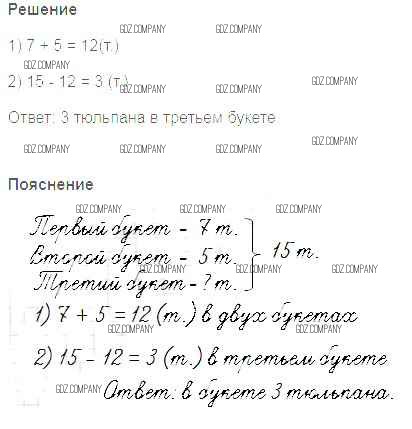 Решение
GDZ.COMPANY GDZ.COMPANY
1) 7 + 5 = 12(т.)
GDZ.COMPANY
2) 15 - 12 = 3 (т.)
GDZ.COMPANY GDZ.COMPANY GDZ.COMPANY
Ответ: 3 тюльпана в третьем букете
GDZ.COMPANY GDZ.COMPANY GDZ.COMPANY GDZ.COMPANY
Пояснение
GDZ.COMPANY GDZ.COMPANY GDZ.COMPANY
Первый букет - 7 т.
Второй букет - 5 т. 15 т.
GDZ.COMPANY GDZ.COMPANY GDZ.COMPANY
Третий букет - ? т.
1) 7 + 5 = 12 (т.) в двух букетах
GDZ.COMPANY GDZ.COMPANY
2) 15 - 12 = 3 (т.) в третьем букете
GDZ.COMPANY GDZ.COMPANY GDZ.COMPANY
Ответ: в букете 3 тюльпана.